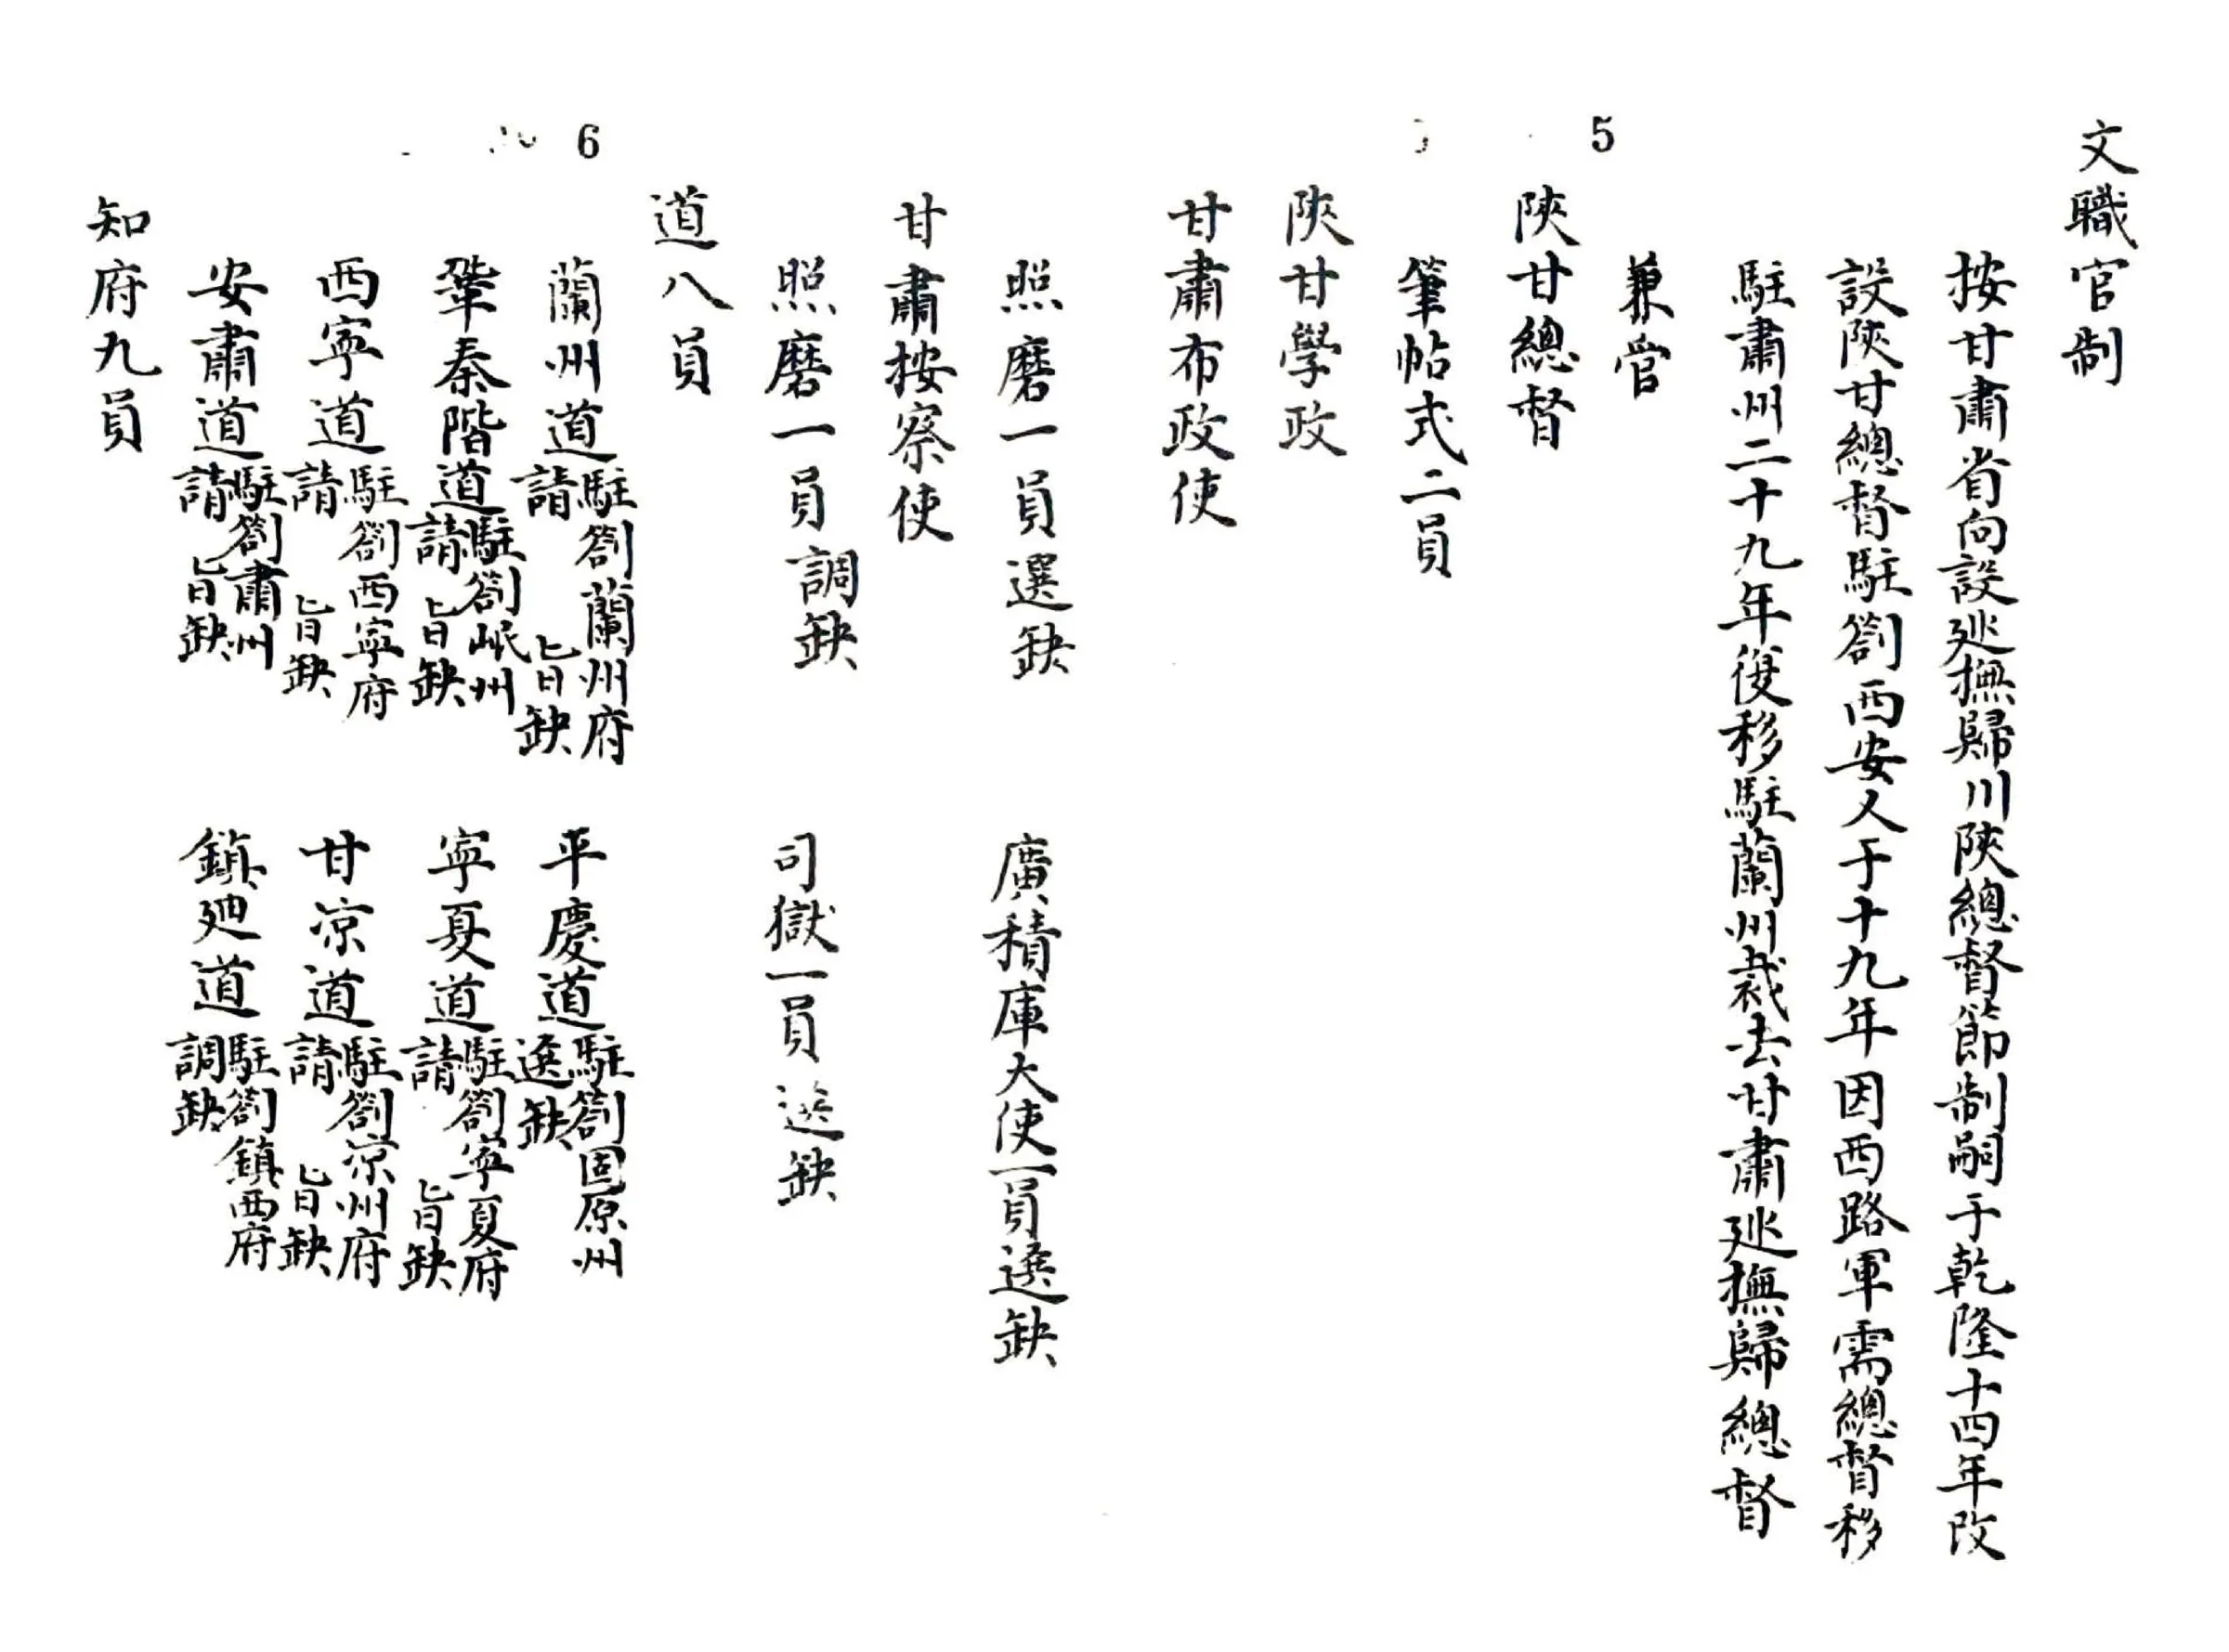 文職官制
按甘肅省向設廵撫歸川陝總督節制嗣于乾隆十四年改
設陝甘總督駐劄西安又于十九年因西路軍需總督移
駐肅州二十九年復移駐蘭州裁去甘肅廵撫歸總督
兼管
5
陝甘總督
筆帖式二員
陝甘學政
甘肅布政使
照磨一員選缺 廣積庫大使一員選缺
甘肅按察使
照磨一員調缺 司獄一員選缺
道八員
6
蘭州道駐劄蘭州府請 旨缺 平慶道駐劄固原州選缺
鞏秦階道駐劄岷州請 旨缺 寧夏道駐劄寧夏府請 旨缺
西寧道駐劄西寧府請 旨缺 甘凉道駐劄凉州府請 旨缺
安肅道駐劄肅州請 旨缺 鎮廸道駐劄鎮西府調缺
知府九員